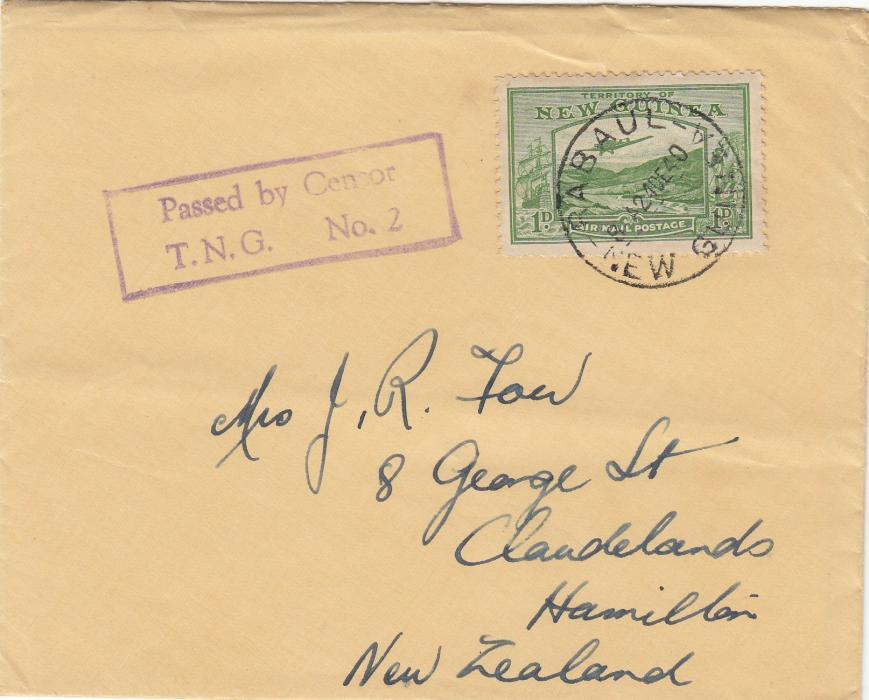 TERRITORY OF
NEW GUINEA
1D
1D
AIR MAIL POSTAGE
RABAUL
NEW GUINEA
Passed by Censor
T.N.G. No. 2
Mrs J. R. Fow
8 George St
Claudelands
Hamilton
New Zealand